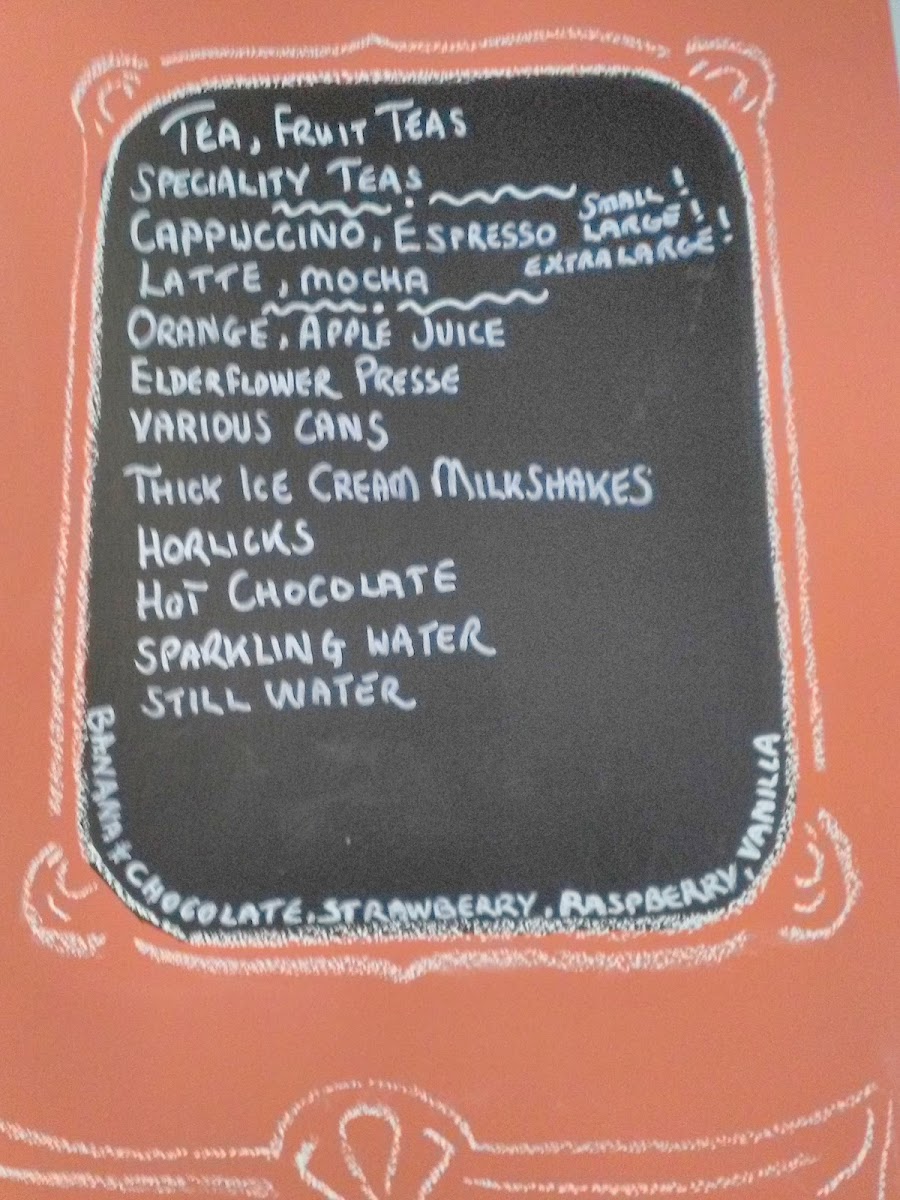 TEA, FRUIT TEAS
SPECIALITY TEAS
CAPPUCCINO, ESPRESSO
SMALL!
LARGE!
EXTRA LARGE!
LATTE, MOCHA
ORANGE, APPLE JUICE
ELDERFLOWER PRESSE
VARIOUS CANS
THICK ICE CREAM MILKSHAKES
HORLICKS
HOT CHOCOLATE
SPARKLING WATER
STILL WATER
BANANA * CHOCOLATE, STRAWBERRY, RASPBERRY, VANILLA